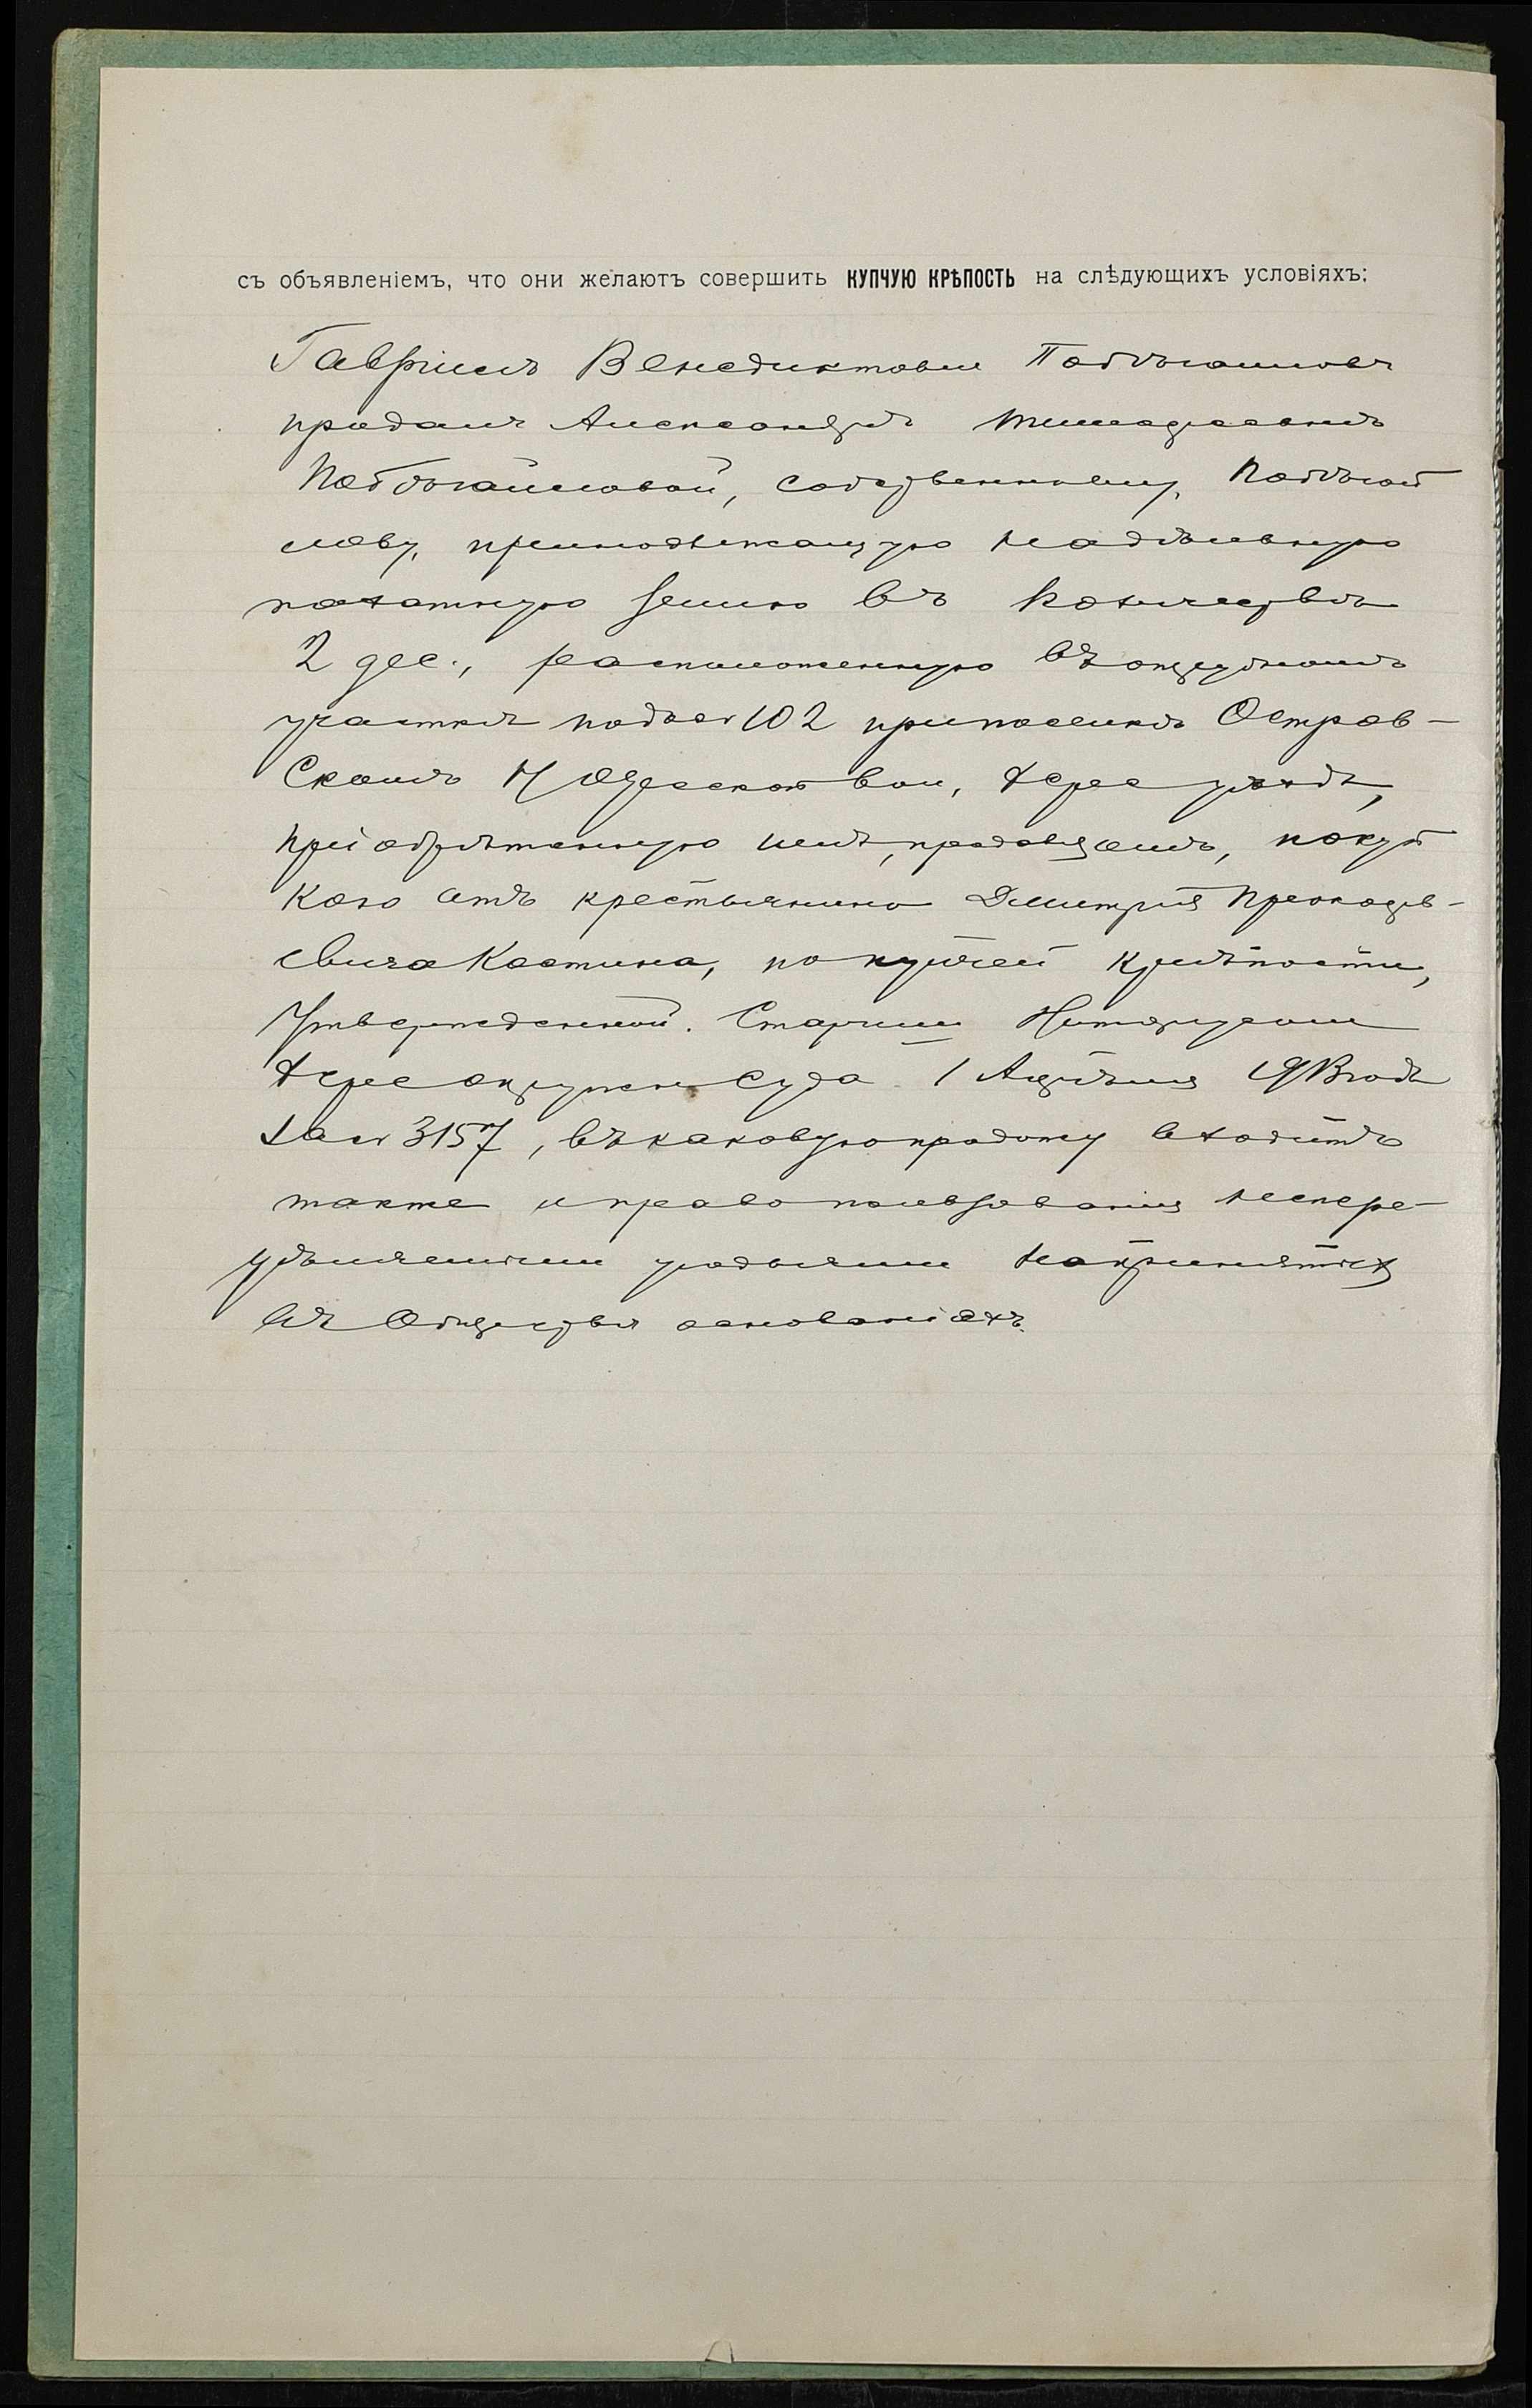 съ объявленіемъ, что они желаютъ совершить КУПЧУЮ КРѢПОСТЬ на слѣдующихъ условіяхъ:
Гавріилъ Венедиктовичъ
продалъ Александрѣ
собственному,
принадлежащую надѣльную
пахатную землю въ количествѣ
2 дес., расположенную въ отрубномъ
участкѣ подъ № 102 при поселкѣ Остров-
скомъ волос, Херс уѣзда,
пріобрѣтенную имъ, продавцомъ, покуп
кою отъ крестьянина Дмитрія
евича Костина, по купчей крѣпости,
утвержденной Старшим Нотаріусом
Херс окружн суда 1 Апрѣля 1913 года
за № 3157, въ каковую продажу входитъ
также и право пользованія непере-
угодьями на принятыхъ
въ Обществѣ основаніяхъ.